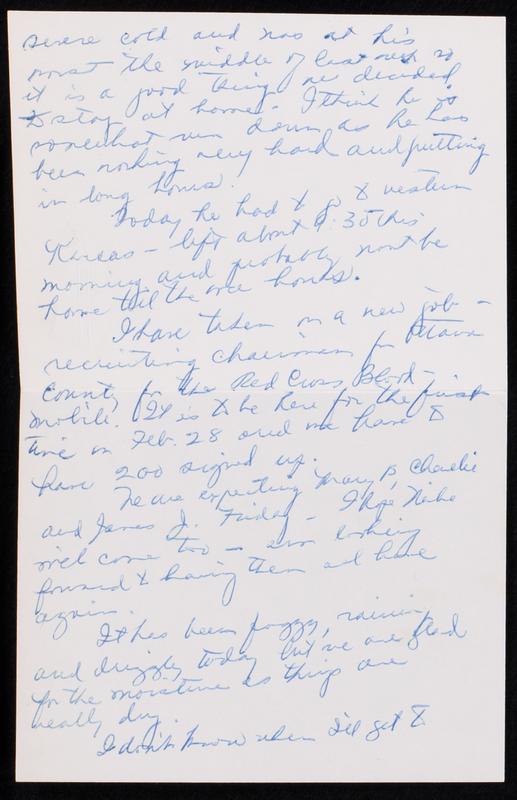 severe cold and was at his
worst the middle of last week so
it is a good thing we decided
to stay at home. I think he is
somewhat run down as he has
been working very hard and putting
in long hours.
Today he had to go to western
Kansas - left about 4:30 this
morning and probably won't be
home till the wee hours.
I have taken on a new job -
recruiting chairman for Ottawa
County for the Red Cross Blood-
mobile. It is to be here for the first
time on Feb. 28 and we have to
have 200 signed up.
We are expecting Mary B, Charlie
and James J. Friday - I hope
will come too - am looking
forward to having them all here
again.
It has been foggy, raining
and drizzly today but we are glad
for the moisture as things are
really dry.
I don't know when I'll get to